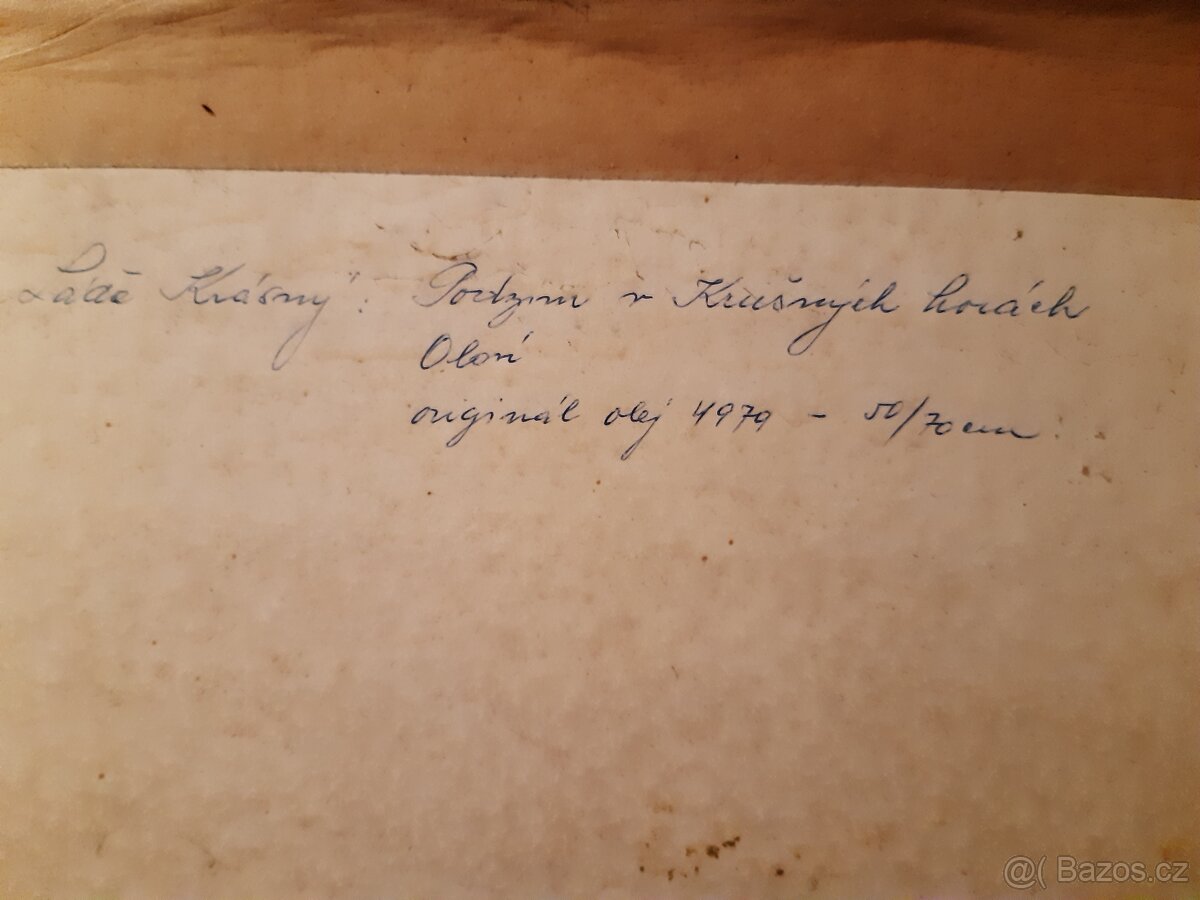 Láďa Krásný: Podzim v Krušných horách
Oloví
originál olej 1979 - 50/70 cm
@( Bazos.cz